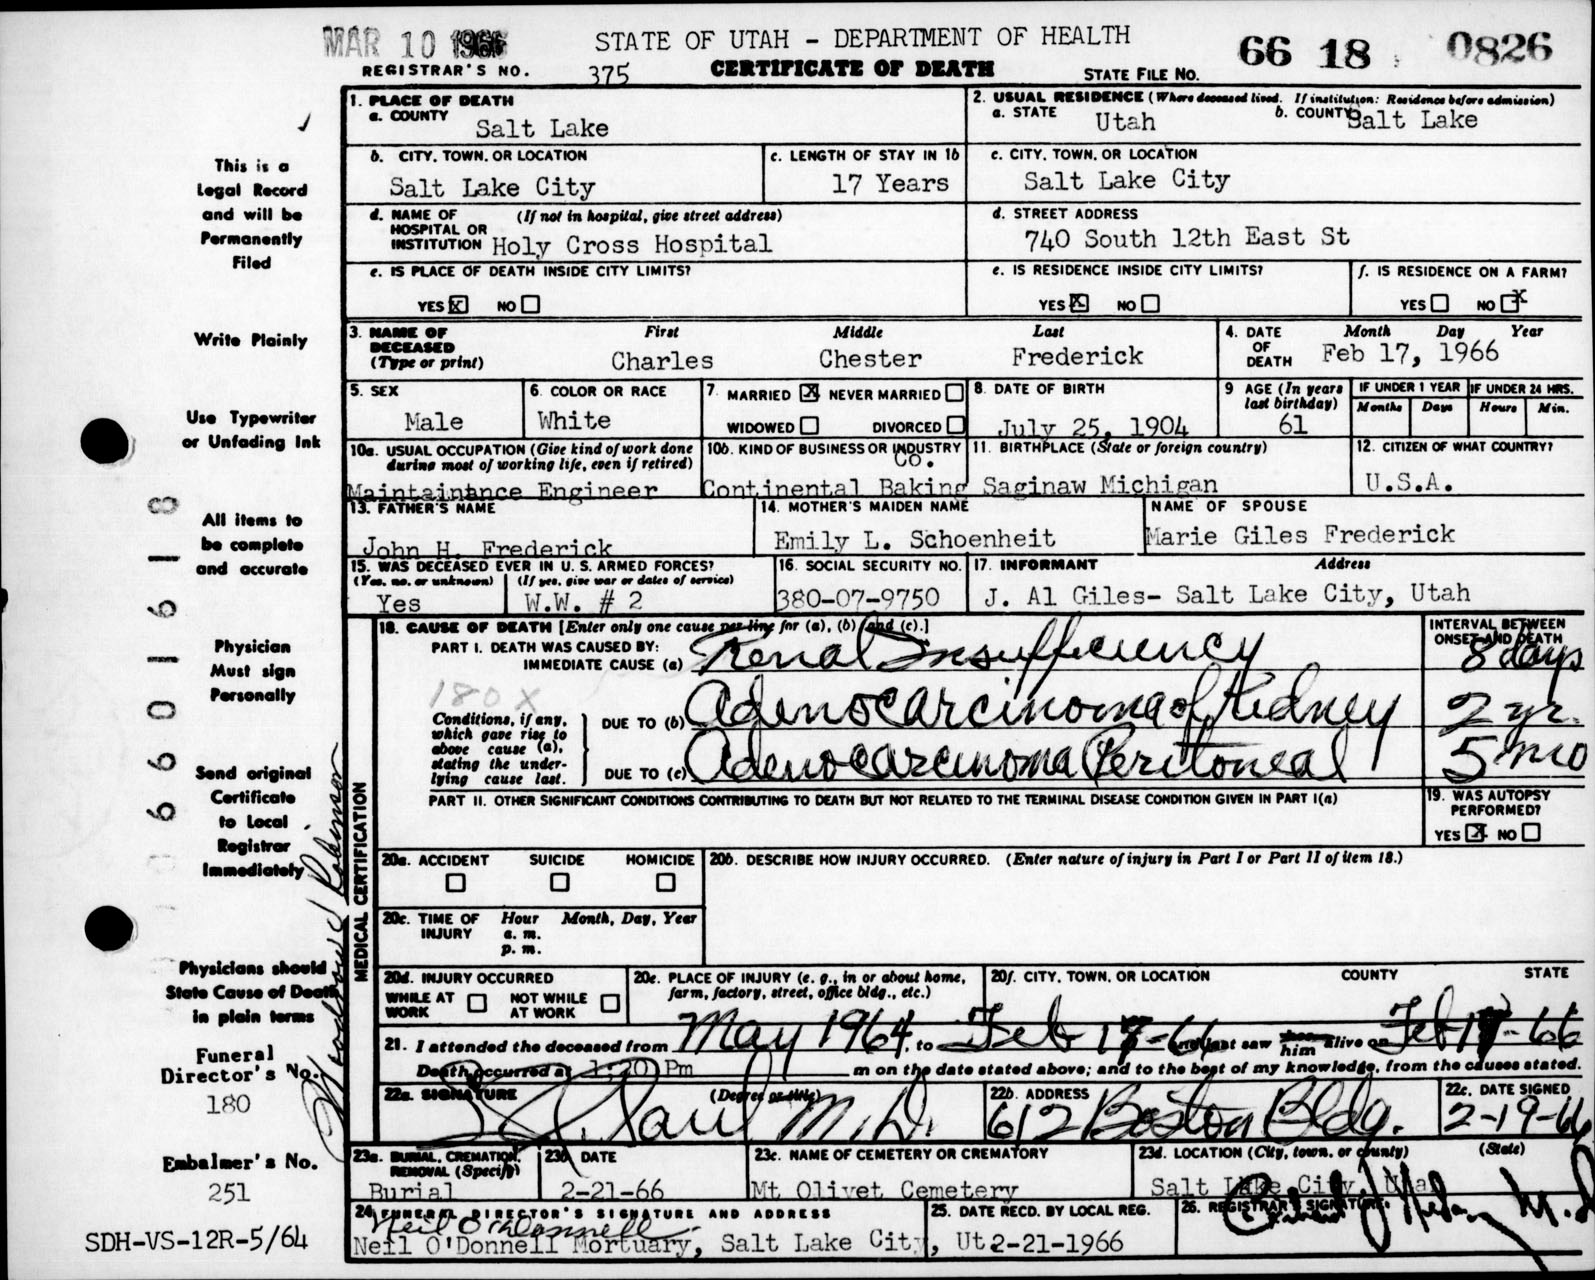 MAR 10 1966
STATE OF UTAH - DEPARTMENT OF HEALTH
66 18 0826
REGISTRAR'S NO. 375 CERTIFICATE OF DEATH STATE FILE NO.
This is a
Legal Record
and will be
Permanently
Filed
Write Plainly
Use Typewriter
or Unfading Ink
All items to
be complete
and accurate
Physician
Must sign
Personally
Send original
Certificate
to Local
Registrar
Immediately
Physicians should
State Cause of Death
in plain terms
Funeral
Director's No.
180
Embalmer's No.
251
SDH-VS-12R-5/64
1. PLACE OF DEATH
a. COUNTY Salt Lake
2. USUAL RESIDENCE (Where deceased lived. If institution: Residence before admission)
a. STATE Utah b. COUNTY Salt Lake
b. CITY, TOWN, OR LOCATION
Salt Lake City
c. LENGTH OF STAY IN 1b
17 Years
c. CITY, TOWN, OR LOCATION
Salt Lake City
d. NAME OF (If not in hospital, give street address)
HOSPITAL OR
INSTITUTION Holy Cross Hospital
d. STREET ADDRESS
740 South 12th East St
e. IS PLACE OF DEATH INSIDE CITY LIMITS?
YES X NO
e. IS RESIDENCE INSIDE CITY LIMITS?
YES X NO
f. IS RESIDENCE ON A FARM?
YES NO X
3. NAME OF First Middle Last
DECEASED
(Type or print) Charles Chester Frederick
4. DATE Month Day Year
OF
DEATH Feb 17, 1966
5. SEX
Male
6. COLOR OR RACE
White
7. MARRIED X NEVER MARRIED
WIDOWED DIVORCED
8. DATE OF BIRTH
July 25, 1904
9 AGE (In years
last birthday)
61
IF UNDER 1 YEAR
Months Days
IF UNDER 24 HRS.
Hours Min.
10a. USUAL OCCUPATION (Give kind of work done
during most of working life, even if retired)
Maintainance Engineer
10b. KIND OF BUSINESS OR INDUSTRY
Co.
Continental Baking
11. BIRTHPLACE (State or foreign country)
Saginaw Michigan
12. CITIZEN OF WHAT COUNTRY?
U.S.A.
13. FATHER'S NAME
John H. Frederick
14. MOTHER'S MAIDEN NAME
Emily L. Schoenheit
NAME OF SPOUSE
Marie Giles Frederick
15. WAS DECEASED EVER IN U. S. ARMED FORCES?
(Yes, no, or unknown) (If yes, give war or dates of service)
Yes W.W. # 2
16. SOCIAL SECURITY NO.
380-07-9750
17. INFORMANT Address
J. Al Giles- Salt Lake City, Utah
MEDICAL CERTIFICATION
18. CAUSE OF DEATH [Enter only one cause per line for (a), (b) and (c).]
INTERVAL BETWEEN
ONSET AND DEATH
PART I. DEATH WAS CAUSED BY:
IMMEDIATE CAUSE (a) Renal Insufficiency 8 days
180X
Conditions, if any,
which gave rise to
above cause (a),
stating the under-
lying cause last.
DUE TO (b) Adenocarcinoma of Kidney 2 yr.
DUE TO (c) Adenocarcinoma Peritoneal 5 mo
PART II. OTHER SIGNIFICANT CONDITIONS CONTRIBUTING TO DEATH BUT NOT RELATED TO THE TERMINAL DISEASE CONDITION GIVEN IN PART I(a)
19. WAS AUTOPSY
PERFORMED?
YES X NO
20a. ACCIDENT SUICIDE HOMICIDE
20b. DESCRIBE HOW INJURY OCCURRED. (Enter nature of injury in Part I or Part II of item 18.)
20c. TIME OF Hour Month, Day, Year
INJURY a. m.
p. m.
20d. INJURY OCCURRED
WHILE AT WORK NOT WHILE AT WORK
20e. PLACE OF INJURY (e. g., in or about home,
farm, factory, street, office bldg., etc.)
20f. CITY, TOWN, OR LOCATION COUNTY STATE
21. I attended the deceased from May 1964, to Feb 17-66 and last saw him alive on Feb 17-66
Death occurred at 1:20 Pm m on the date stated above; and to the best of my knowledge, from the causes stated.
22a. SIGNATURE (Degree or title)
Paul M.D.
22b. ADDRESS
612 Boston Bldg.
22c. DATE SIGNED
2-19-66
23a. BURIAL, CREMATION,
REMOVAL (Specify)
Burial
23b DATE
2-21-66
23c. NAME OF CEMETERY OR CREMATORY
Mt Olivet Cemetery
23d. LOCATION (City, town, or county) (State)
Salt Lake City, Utah
24. FUNERAL DIRECTOR'S SIGNATURE AND ADDRESS
Neil O'Donnell
Neil O'Donnell Mortuary, Salt Lake City, Ut
25. DATE RECD. BY LOCAL REG.
2-21-1966
26. REGISTRAR'S SIGNATURE